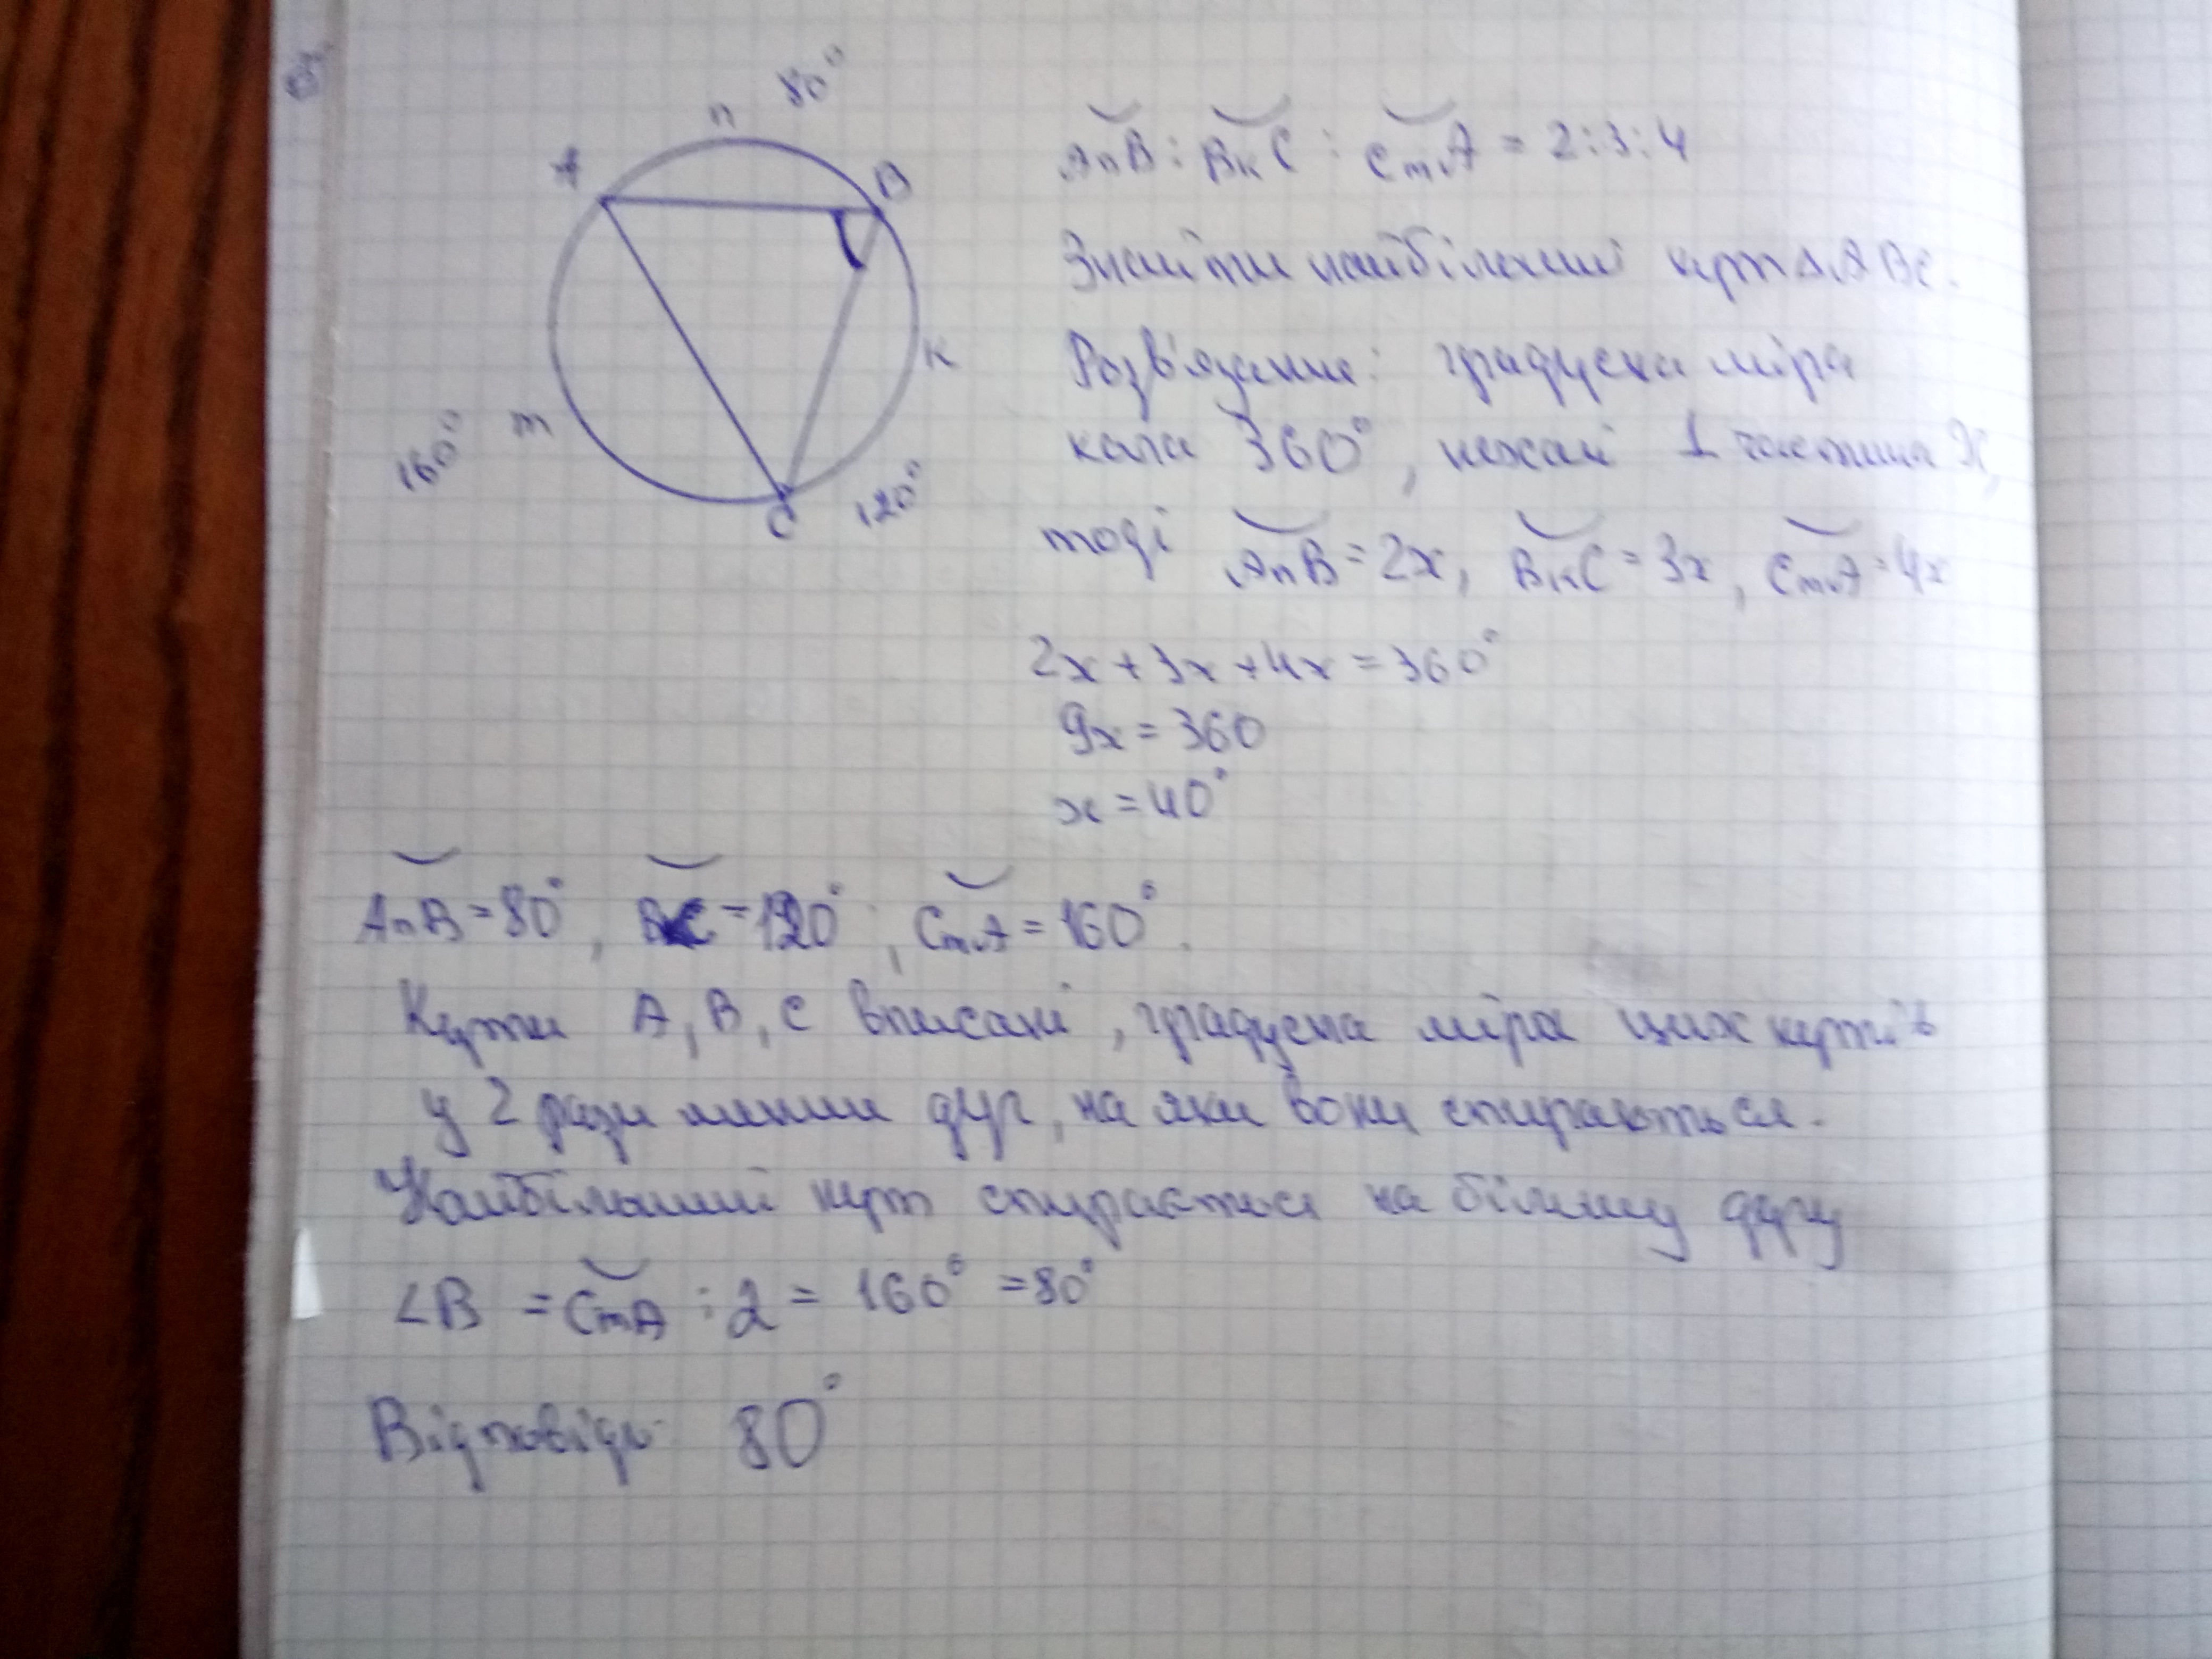 n 80°
A B
K
m
160°
C 120°
AnB : BкC : CmA = 2:3:4
Знайти найбільший кут ΔABC.
Розв'язання: градусна міра
кола 360°, нехай 1 частина x,
тоді AnB = 2x, BкC = 3x, CmA = 4x
2x + 3x + 4x = 360°
9x = 360
x = 40°
AnB = 80°, BкC = 120°, CmA = 160°.
Кути A, B, C вписані, градусна міра цих кутів
у 2 рази менши дуг, на яки вони спираються.
Найбільший кут спирається на більшу дугу
∠B = CmA : 2 = 160° = 80°
Відповідь 80°